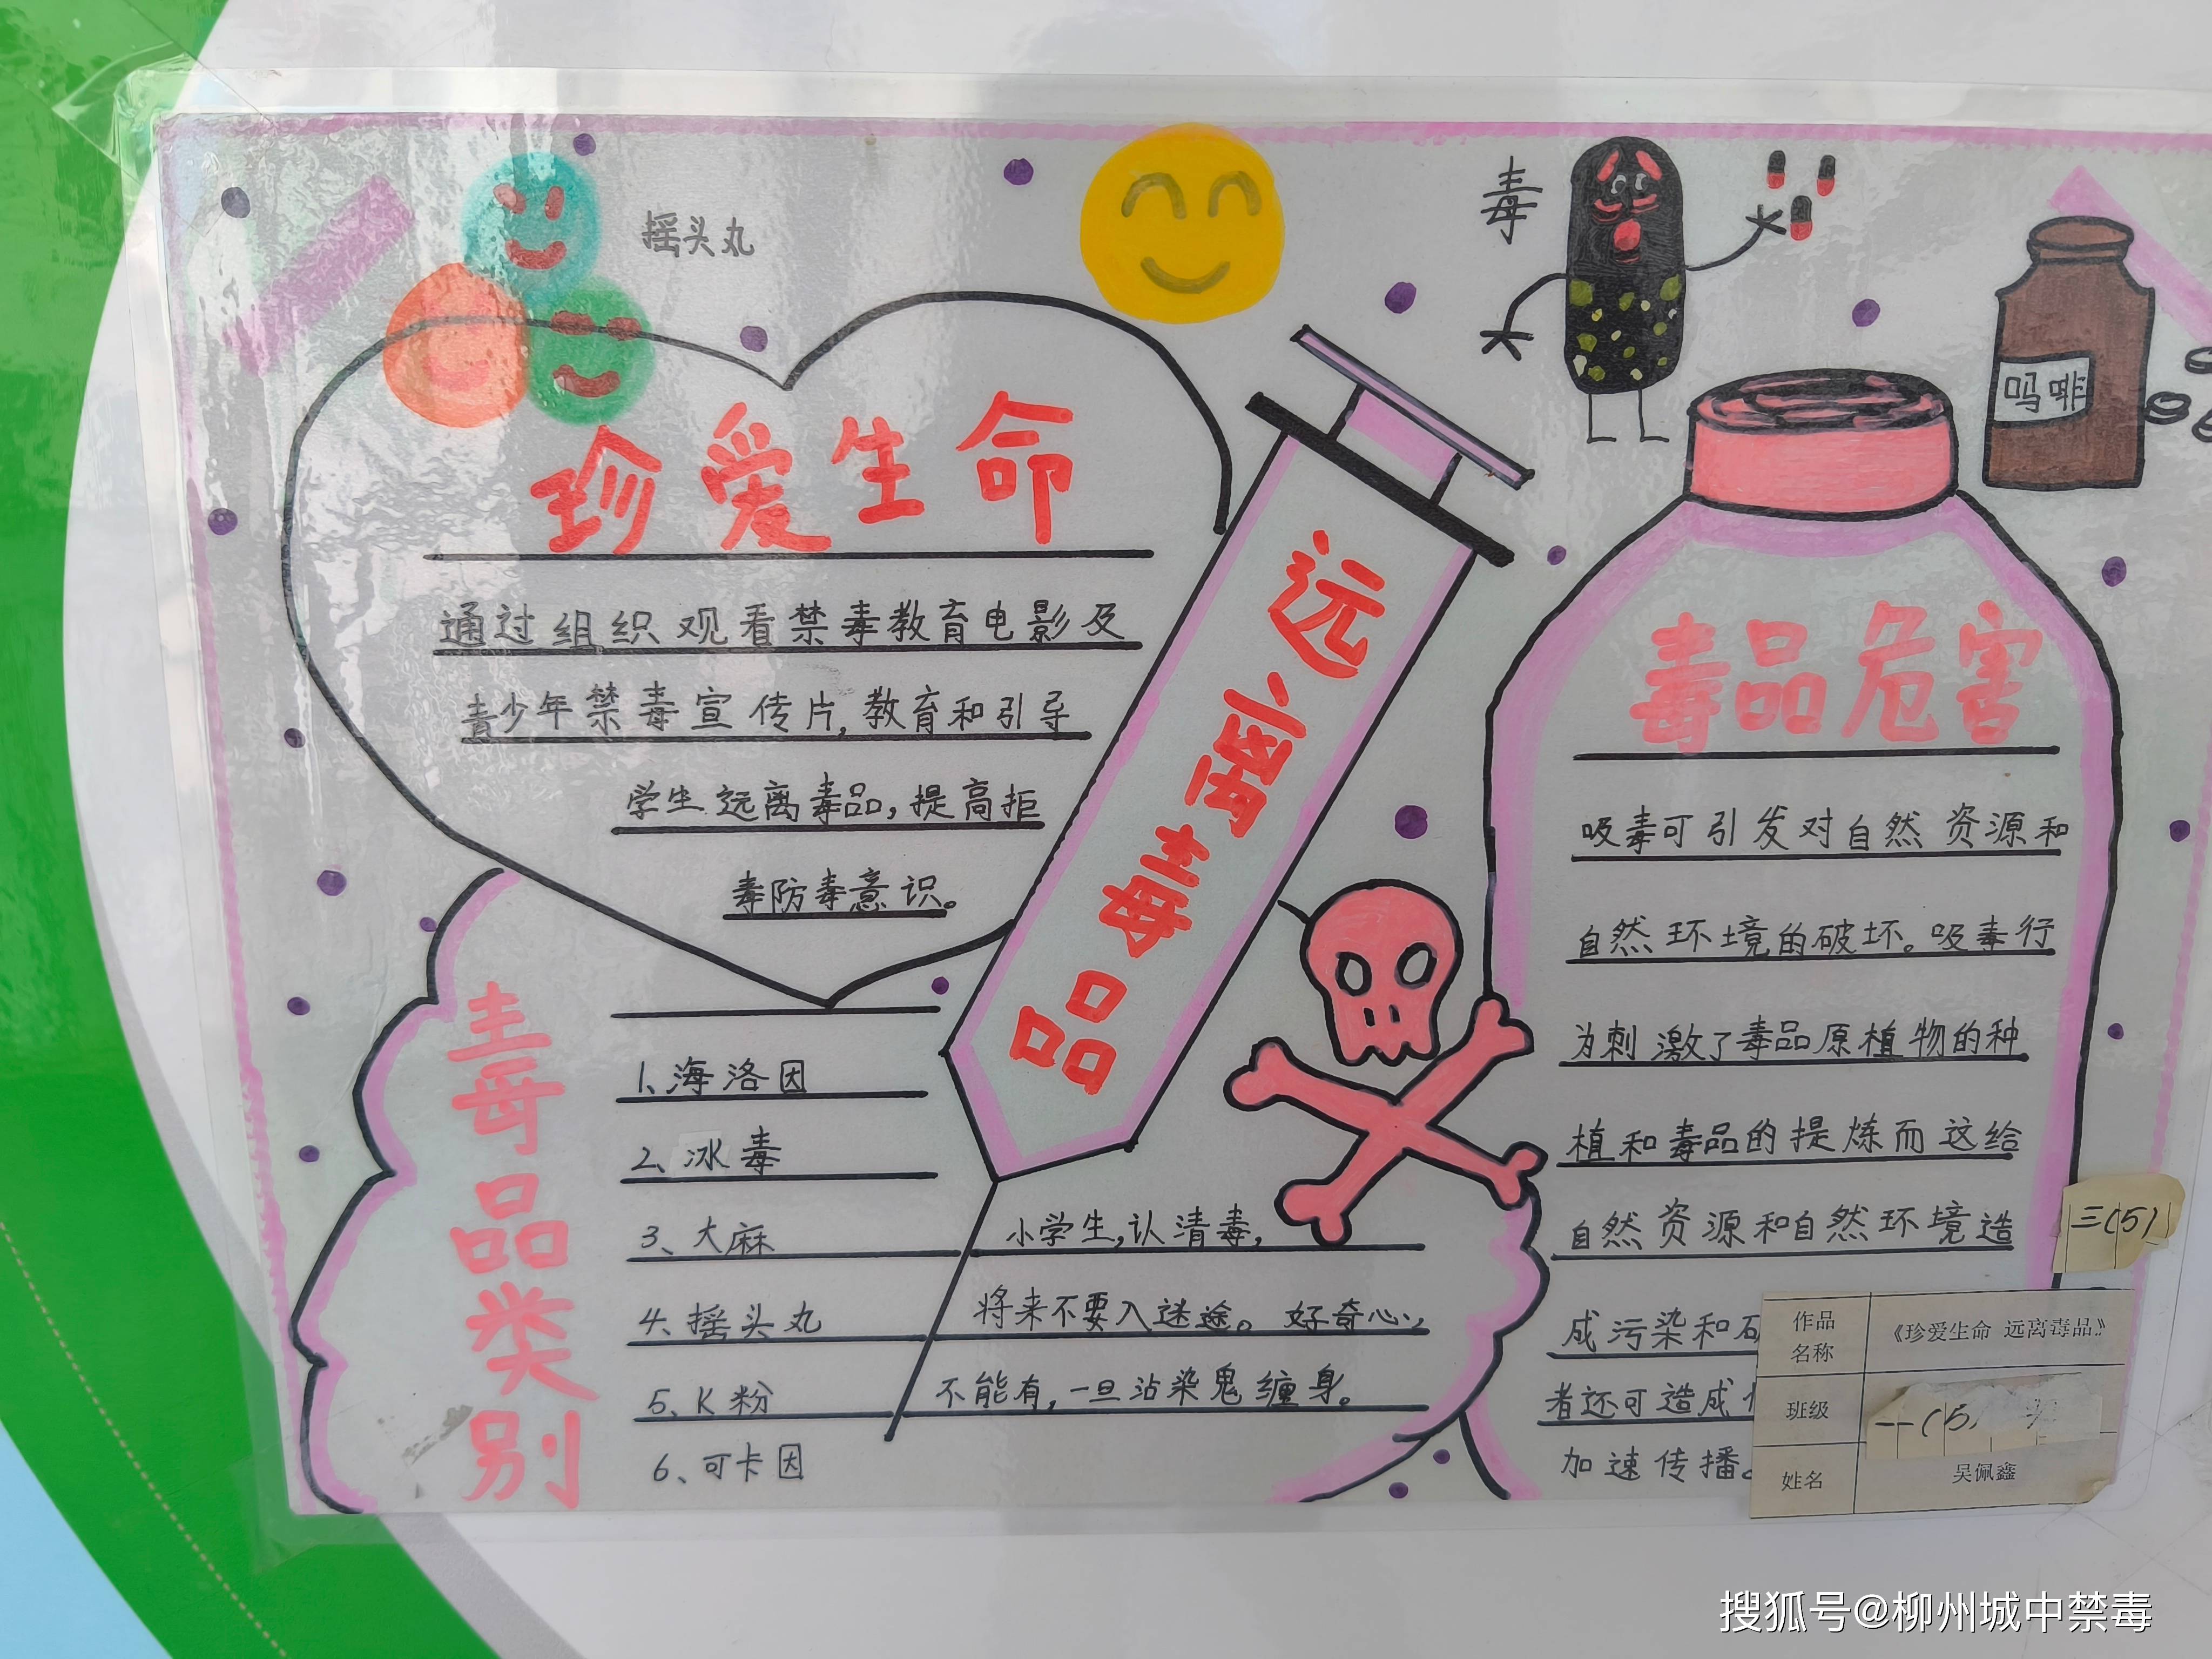 摇头丸
毒
吗啡
珍爱生命
通过组织观看禁毒教育电影及
青少年禁毒宣传片,教育和引导
学生远离毒品,提高拒
毒防毒意识。
远离毒品
毒品类别
1、海洛因
2、冰毒
3、大麻
4、摇头丸
5、K粉
6、可卡因
小学生,认清毒,
将来不要入迷途。好奇心,
不能有,一旦沾染鬼缠身。
毒品危害
吸毒可引发对自然资源和
自然环境的破坏。吸毒行
为刺激了毒品原植物的种
植和毒品的提炼而这给
自然资源和自然环境造
成污染和
者还可造成
加速传播。
三(5)
作品名称 《珍爱生命 远离毒品》
班级
姓名 吴佩鑫
搜狐号@柳州城中禁毒